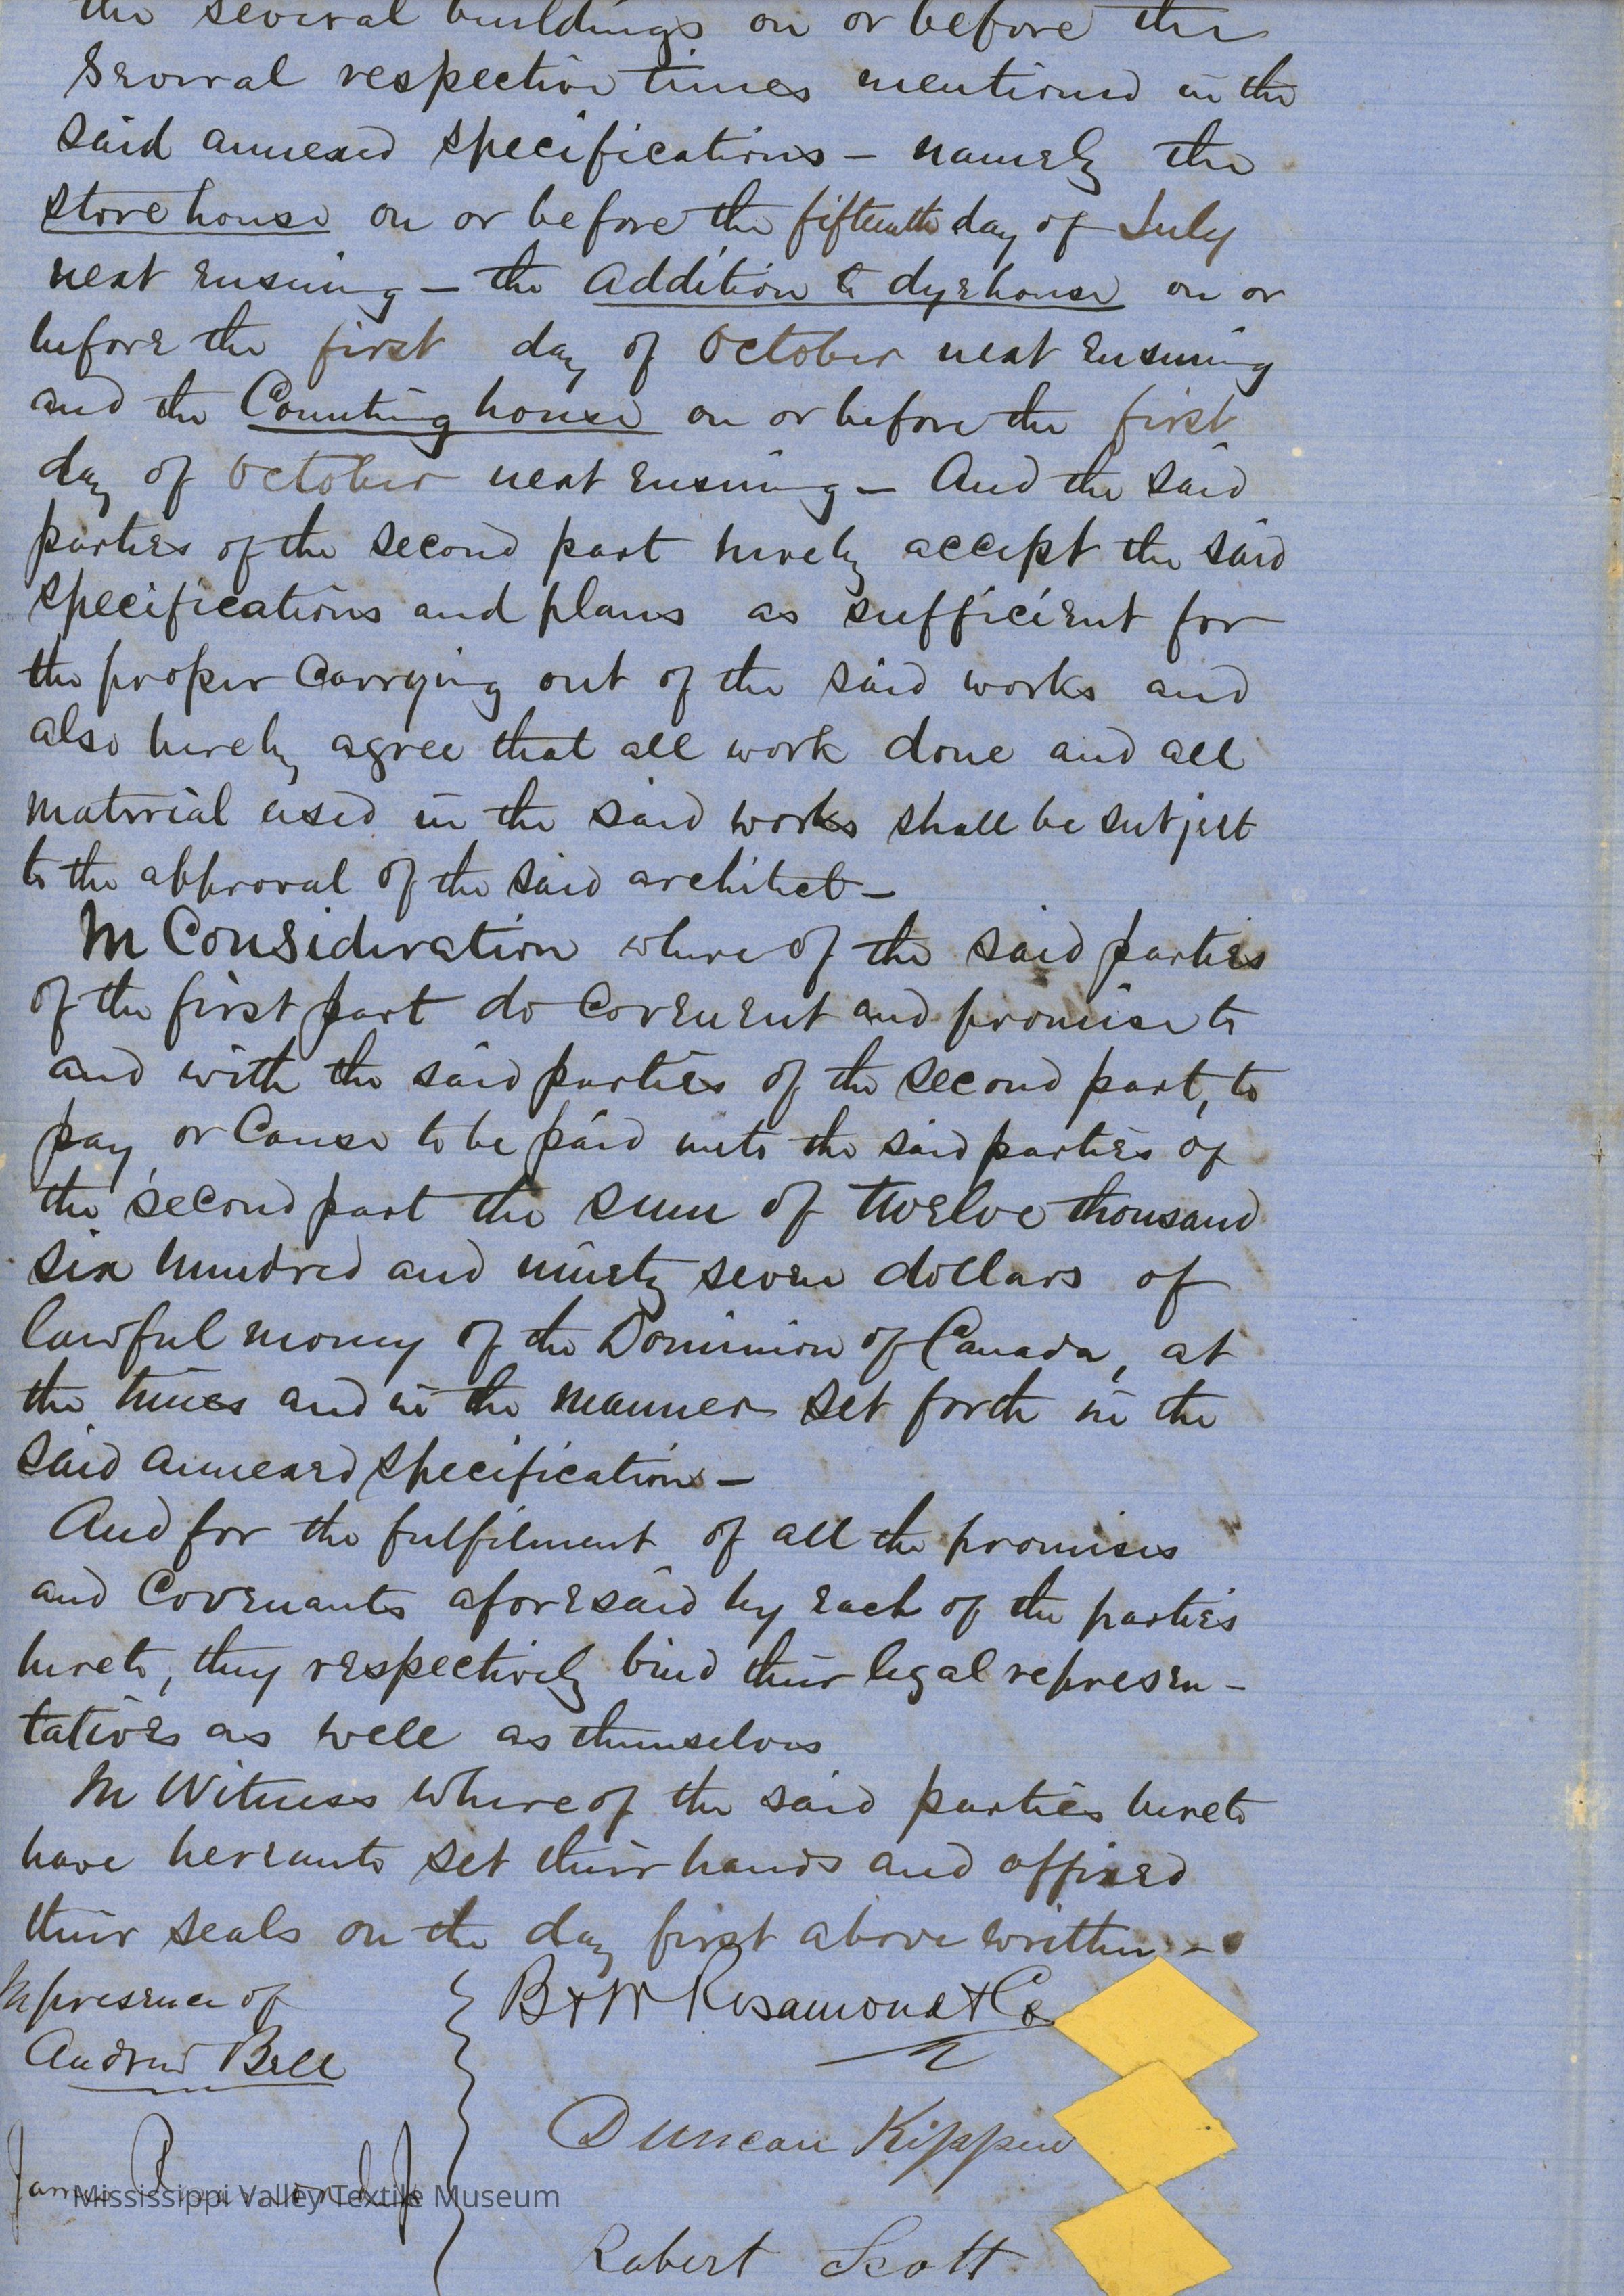 the several buildings on or before the
several respective times mentioned in the
said annexed specifications – namely the
storehouse on or before the fifteenth day of July
next ensuing – the addition to dyehouse on or
before the first day of October next ensuing
and the Counting house on or before the first
day of October next ensuing – And the said
parties of the second part hereby accept the said
specifications and plans as sufficient for
the proper carrying out of the said works and
also hereby agree that all work done and all
material used in the said works shall be subject
to the approval of the said architect –
In Consideration whereof the said parties
of the first part do Covenent and promise to
and with the said parties of the second part, to
pay, or Cause to be paid unto the said parties of
the second part the sum of twelve thousand
six hundred and ninety seven dollars of
lawful money of the Dominion of Canada, at
the times and in the manner set forth in the
said annexed specifications –
And for the fulfilment of all the promises
and Covenants aforesaid by each of the parties
hereto, they respectively bind their legal represen-
tatives as well as themselves
In Witness whereof the said parties hereto
have hereunto set their hands and affixed
their seals on the day first above written –
In presence of
Andrew Bell
James Rosamond Jr
B & W Rosamond & Co
Duncan Kippen
Robert Scott
Mississippi Valley Textile Museum